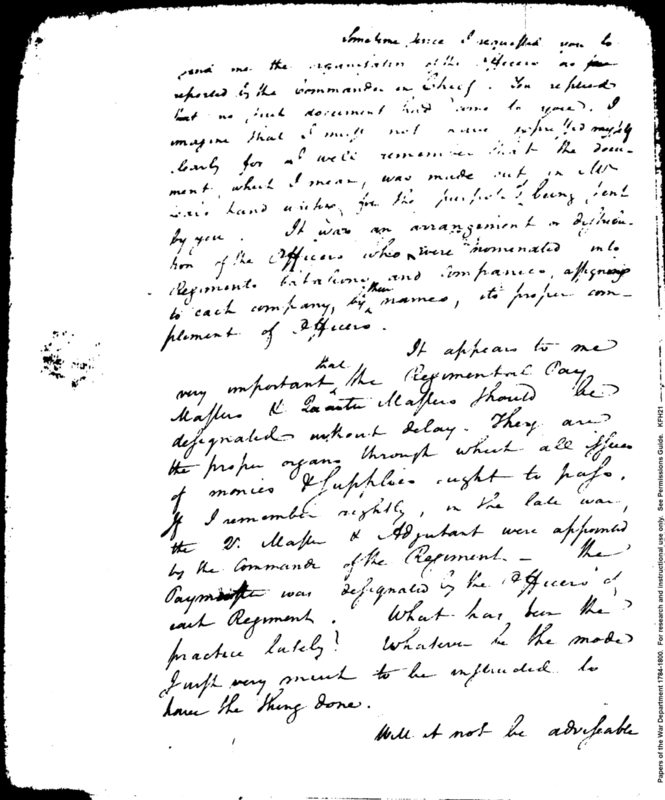 Sometime since I requested you to
send me the organisation of the Officers as
reported by the Commander in Chief. You replied
that no such document had come to you. I
imagine that I must not have expressed myself
clearly for I well remember that the docu-
ment, which I mean, was made out, in Mr
hand writing, for the purpose of being sent
by you. It was an arrangement or distribu-
tion of the Officers who were nominated into
Regiments batalions and companies, assigning
to each company, by their names, its proper com-
plement of Officers.
It appears to me
very important that the Regimental Pay
Masters & Quarter Masters should be
designated without delay. They are
the proper organs through which all issues
of monies & supplies ought to pass.
If I remember rightly, in the late war,
the Q. Master & Adjutant were appointed
by the Commandr of the Regiment — the
Paymaster was designated by the Officers of
each Regiment. What has been the
practice lately? Whatever be the mode
I wish very much to be instructed to
have the thing done.
Will it not be adviseable
Papers of the War Department 1784-1800. For research and instructional use only. See Permissions Guide. KFH21